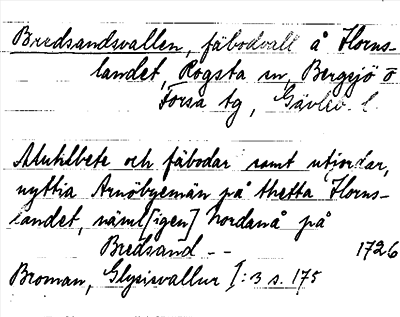 Bredsandsvallen, fäbodvall å Horns-
landet, Rogsta sn, Bergsjö o
Forsa tg, Gävleb. l.
Muhlbete och fäbodar samt utjordar,
nyttia Arnöbyemän på thetta Horns-
landet, näml[igen] Nordanå på
Bredsand -- 1726
Broman, Glysisvallur I:3 s. 175